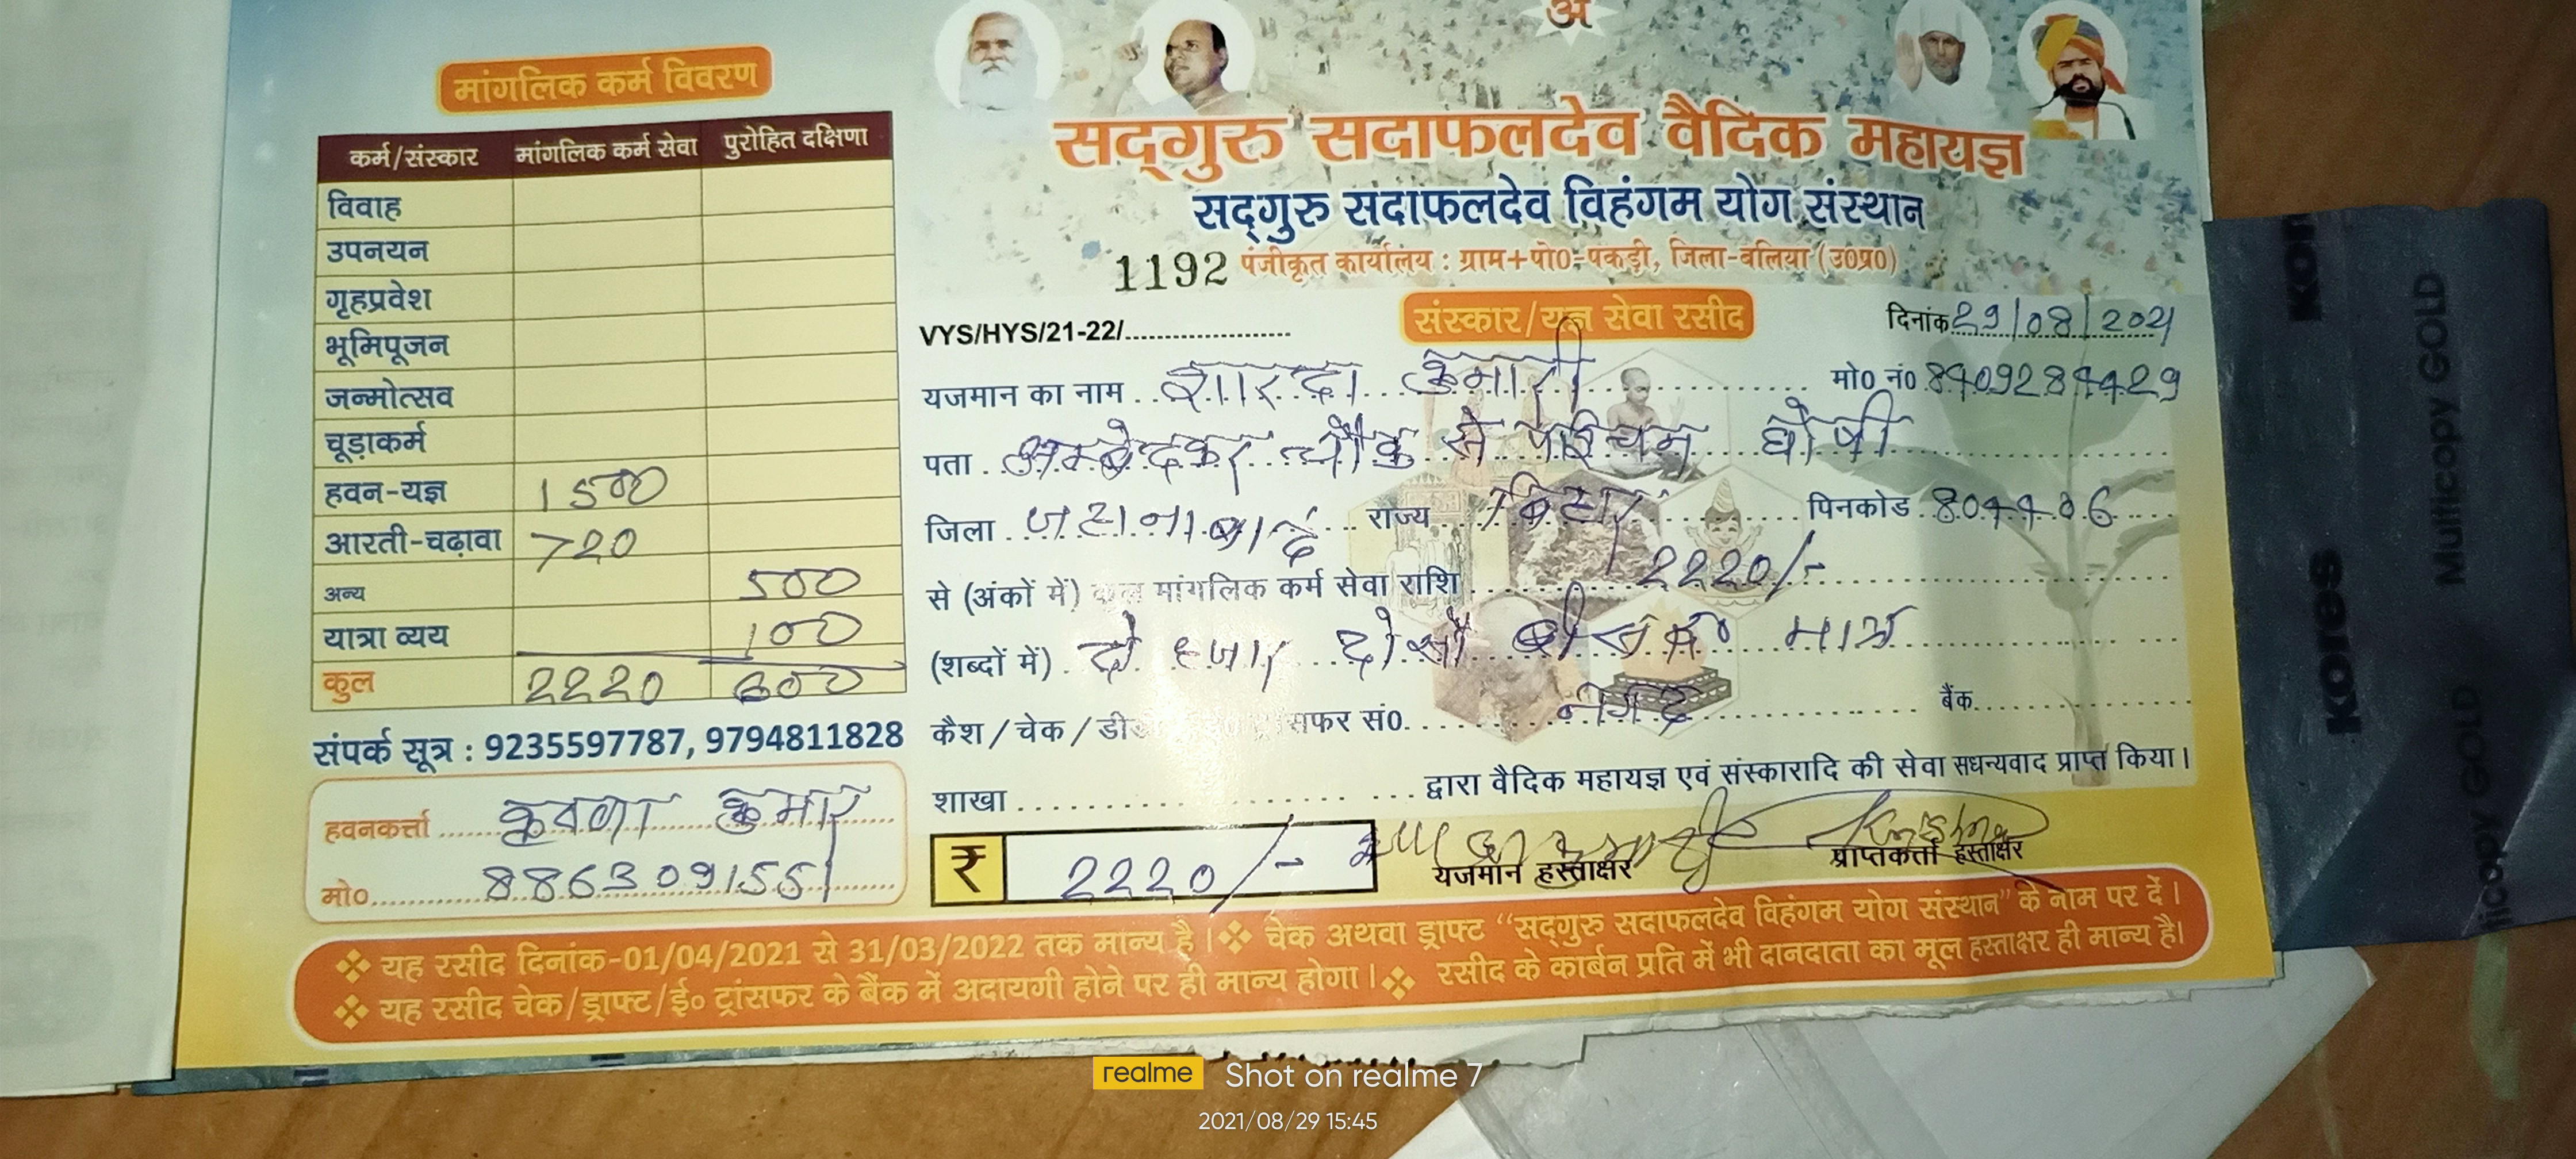 अ
मांगलिक कर्म विवरण
कर्म/संस्कार मांगलिक कर्म सेवा पुरोहित दक्षिणा
विवाह
उपनयन
गृहप्रवेश
भूमिपूजन
जन्मोत्सव
चूड़ाकर्म
हवन-यज्ञ 1500
आरती-चढ़ावा 720
अन्य 500
यात्रा व्यय 100
कुल 2220 600
संपर्क सूत्र : 9235597787, 9794811828
हवनकर्त्ता कृष्णा कुमार
मो० 8863091551
सद्‌गुरु सदाफलदेव वैदिक महायज्ञ
सद्‌गुरु सदाफलदेव विहंगम योग संस्थान
1192 पंजीकृत कार्यालय : ग्राम+पो०-पकड़ी, जिला-बलिया (उ०प्र०)
VYS/HYS/21-22/ संस्कार/यज्ञ सेवा रसीद दिनांक 29/08/2021
यजमान का नाम शारदा कुमारी मो० नं० 8409284429
पता अम्बेदकर चौक से पश्चिम घोषी
जिला जहानाबाद राज्य बिहार पिनकोड 804406
से (अंकों में) कुल मांगलिक कर्म सेवा राशि 2220/-
(शब्दों में) दो हजार दो सौ बीस रू० मात्र
कैश / चेक / डी ट्रांसफर सं० नगद बैंक
शाखा द्वारा वैदिक महायज्ञ एवं संस्कारादि की सेवा सधन्यवाद प्राप्त किया।
₹ 2220/- यजमान हस्ताक्षर Krishna प्राप्तकर्त्ता हस्ताक्षर
❖ यह रसीद दिनांक-01/04/2021 से 31/03/2022 तक मान्य है। ❖ चेक अथवा ड्राफ्ट "सद्‌गुरु सदाफलदेव विहंगम योग संस्थान" के नाम पर दें।
❖ यह रसीद चेक/ड्राफ्ट/ई० ट्रांसफर के बैंक में अदायगी होने पर ही मान्य होगा। ❖ रसीद के कार्बन प्रति में भी दानदाता का मूल हस्ताक्षर ही मान्य है।
Kores
Multicopy GOLD
realme Shot on realme 7
2021/08/29 15:45